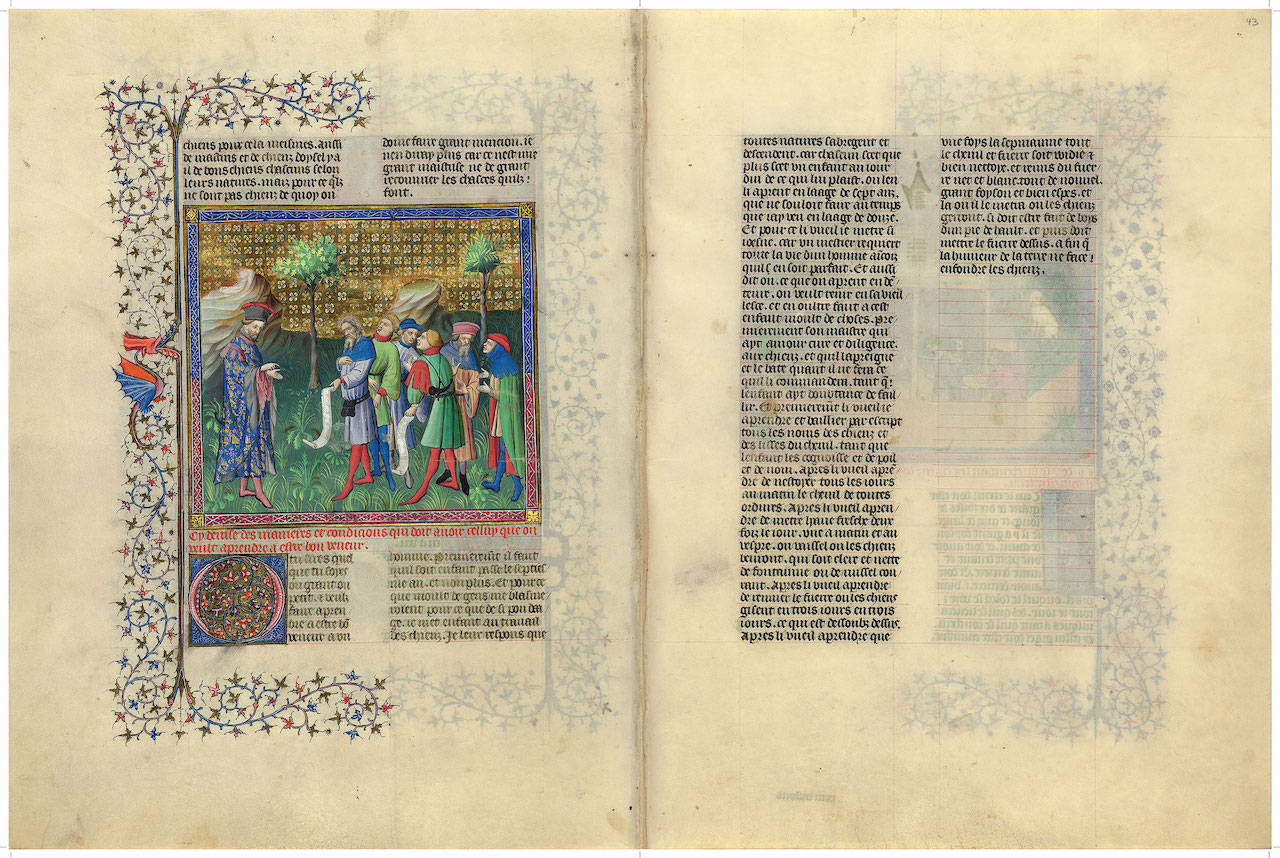 chiens pour cela meismes. aussi
de mastins et de chienz doysel y a
il de bons chiens chascuns selon
leurs natures. mais pour ce qlz
ne sont pas chienz de quoy on
doive faire grant mencion. ie
nen diray plus car ce nest mie
grant maistrise ne de grant
recouvrer les chasces quilz
font.
Cy devise des manieres et condicions qui doit avoir celluy que on
veult aprendre a estre bon veneur.
tu sires quel
que tu soyes
ou grant ou
petit. q veulz
faire apren
dre a estre bo
veneur a un
homme. Premieremt il faut
quil soit enfant passe le septies
me an. et non plus. Et pour ce
que moult de gens me blasme
roient pour ce que de si pou
ge. ie met enfant au travail
des chienz. Je leur respons que
43
toutes natures sabregent et
descendent. car chascun scet que
plus scet un enfant au iour
dui de ce qui lui plaist. ou len
li aprent en laage de sept anz
que ne souloit faire au temps
que iay veu en laage de douze.
Et pour ce li vueil ie metre si
ioesne. car un mestier requiert
toute la vie dun homme aicois
quil en soit parfait. Et aussi
dit on. ce que on aprent en de
teure. on veult tenir en sa vieil
lesce. et en oultre faut a cest
enfant moult de choses. Pre
mierement son maistre qui
ayt amour cure et diligence.
aux chienz. et quil lapreigne
et le bate quant il ne fera ce
quil li commandera. tant q
lenfant ayt doubtance de fail
lir. Et premieremt li vueil ie
aprendre et baillier par escript
tous les noms des chienz et
des lisses du chenil. tant que
lenfant les cognoisse et de poil
et de nom. Apres li vueil apre
dre de nestoyer tous les iours
au matin le chenil de toutes
ordures. Apres li vueil apren
dre de metre yaue fresche deux
foiz le iour. une a matin et au
vespre. ou vaissel ou les chienz
bevront. qui soit clere et nette
de fontainne ou de ruissel cou
rant. Apres li vueil aprendre
de remuer le fuerre ou les chiens
gisent en trois iours en trois
iours. ce qui est dessoubz dessus.
Apres li vueil aprendre que
une foys la sepmainne tout
le chenil et fuerre soit widie &
bien nettoye. et remis du fuer
re net et blanc tout de nouvel.
grant foyson et bien espes. et
la ou il le metra ou les chienz
gerront. si doit estre fait de boys
dun pie de hault. et puis doit
mettre le fuerre dessus. a fin q
la humeur de la terre ne face
enfondre les chienz.